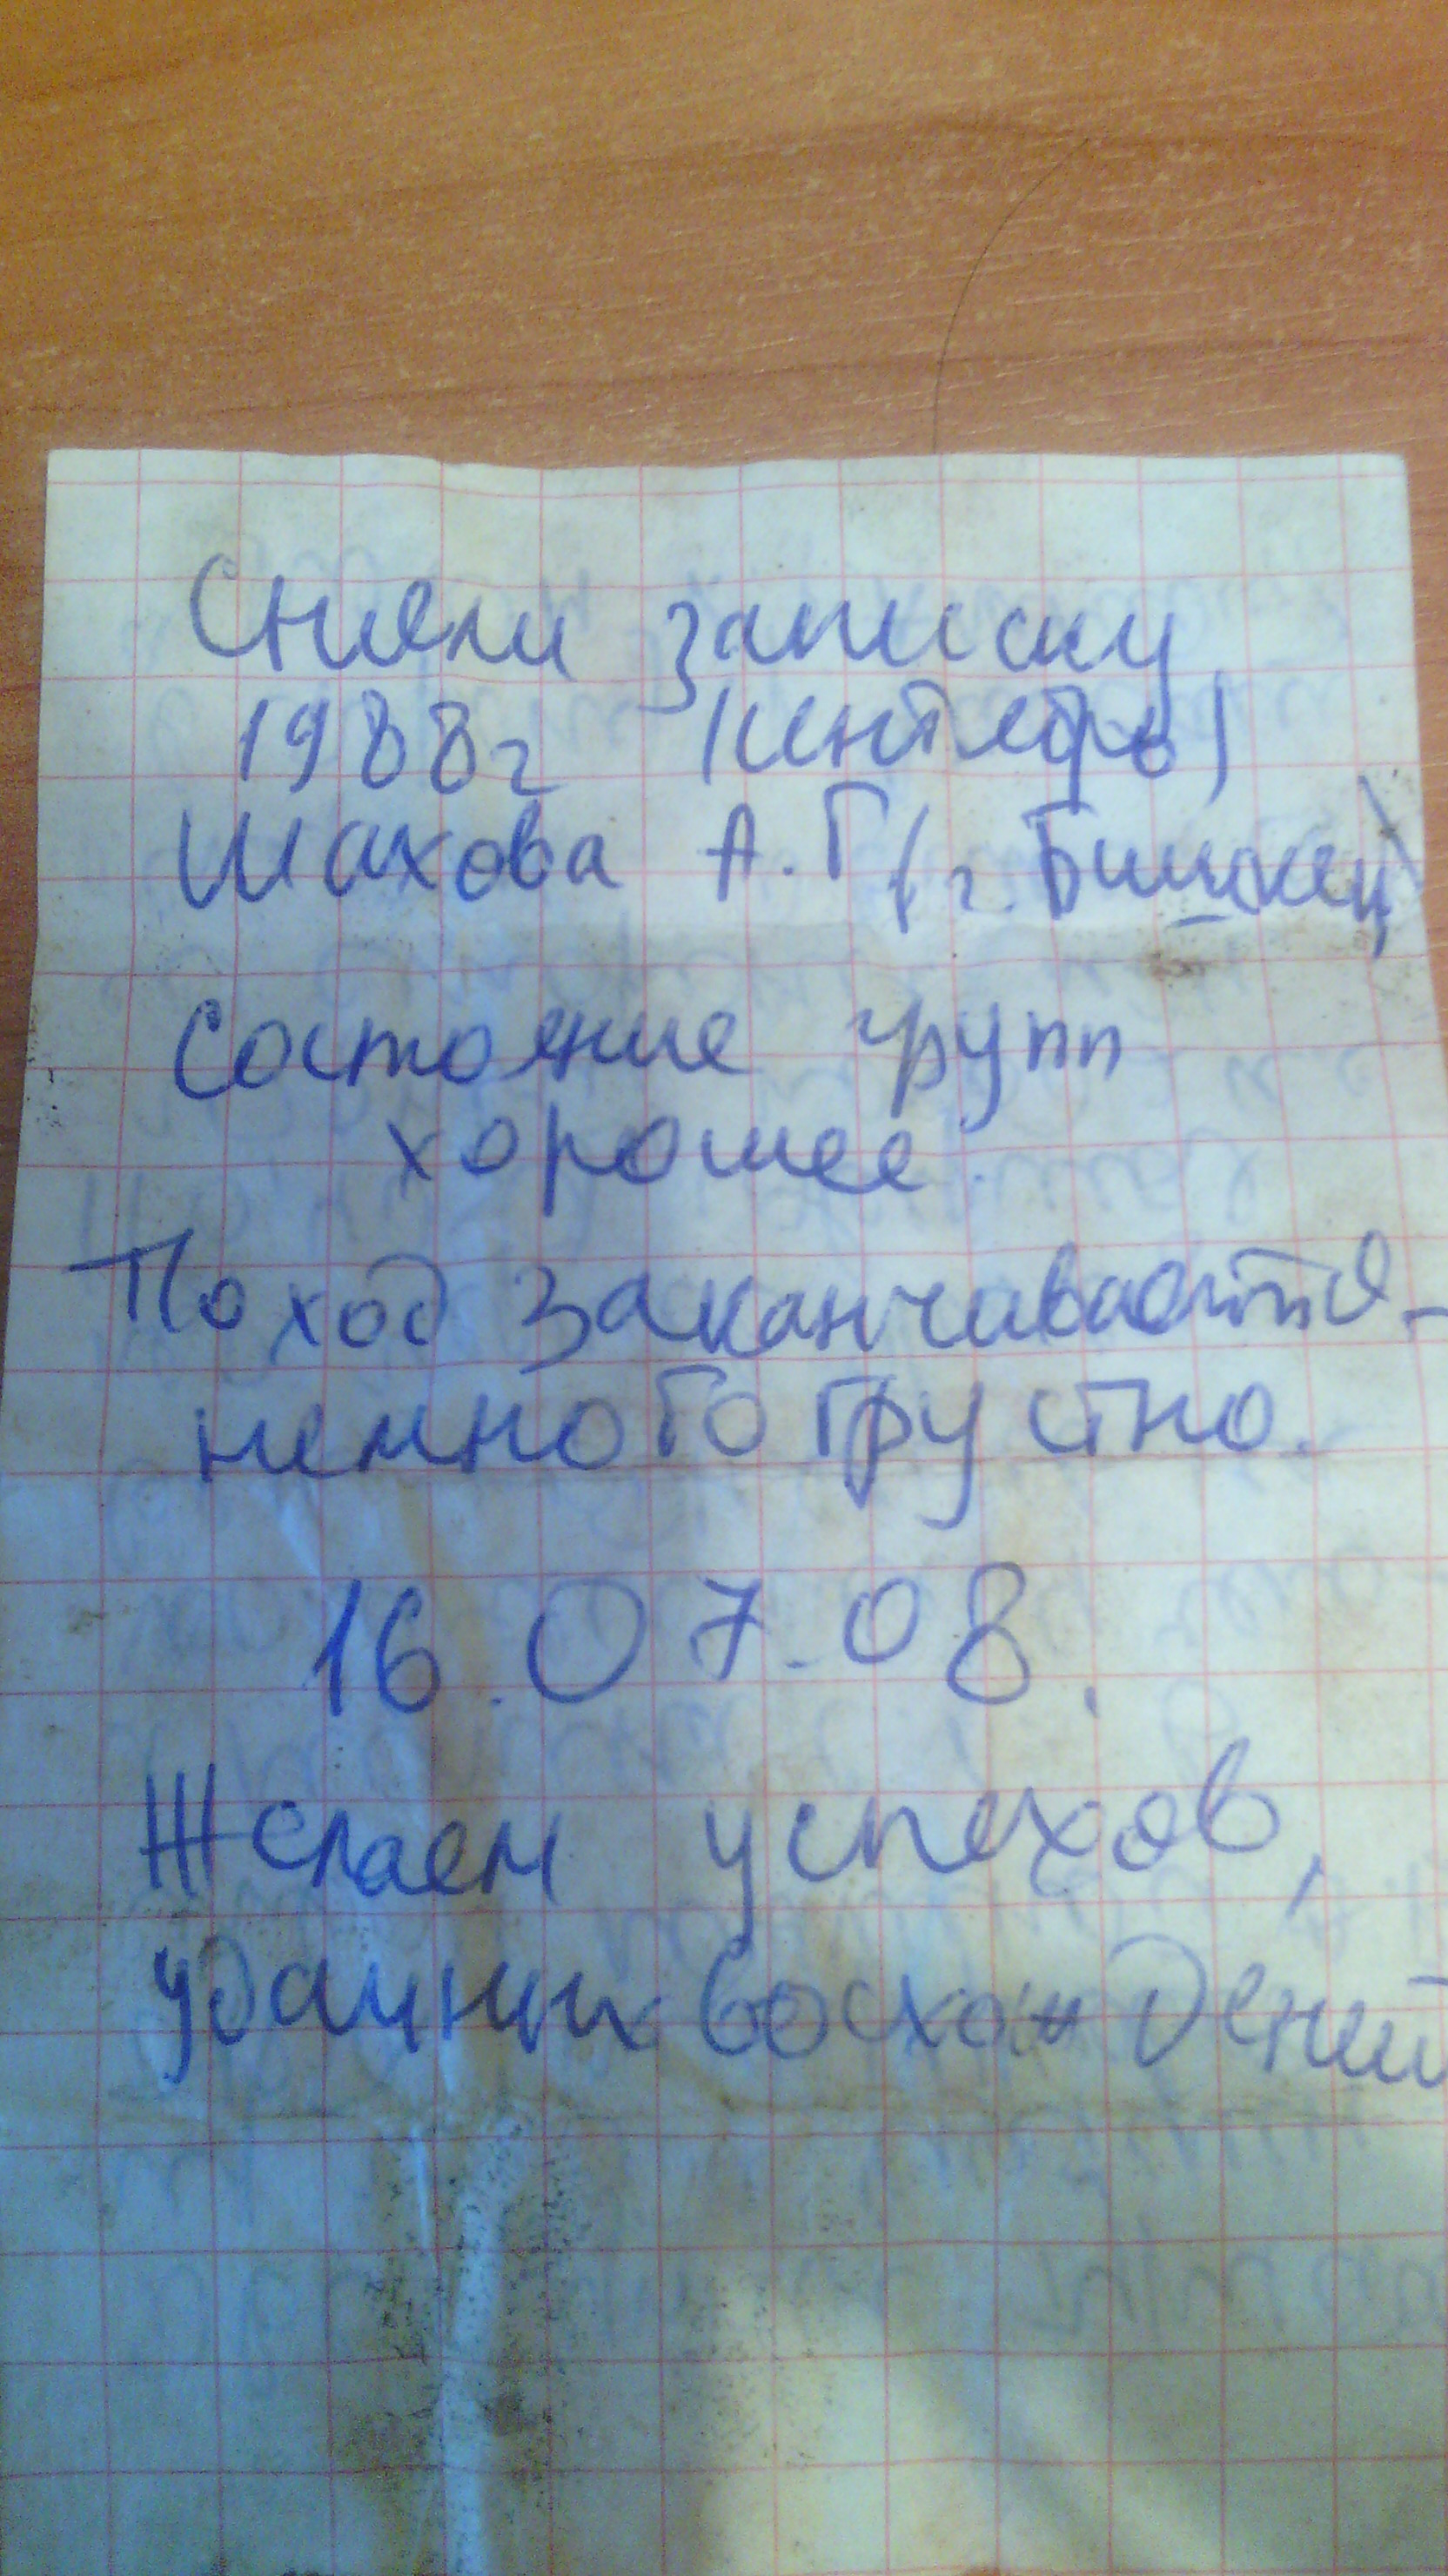 Сняли записку
1988г (сентябрь)
Шахова А.Г (г. Бишкек)
Состояние групп
хорошее
Поход заканчивается -
немного грустно.
16.07.08.
Желаем успехов,
удачных восхождений